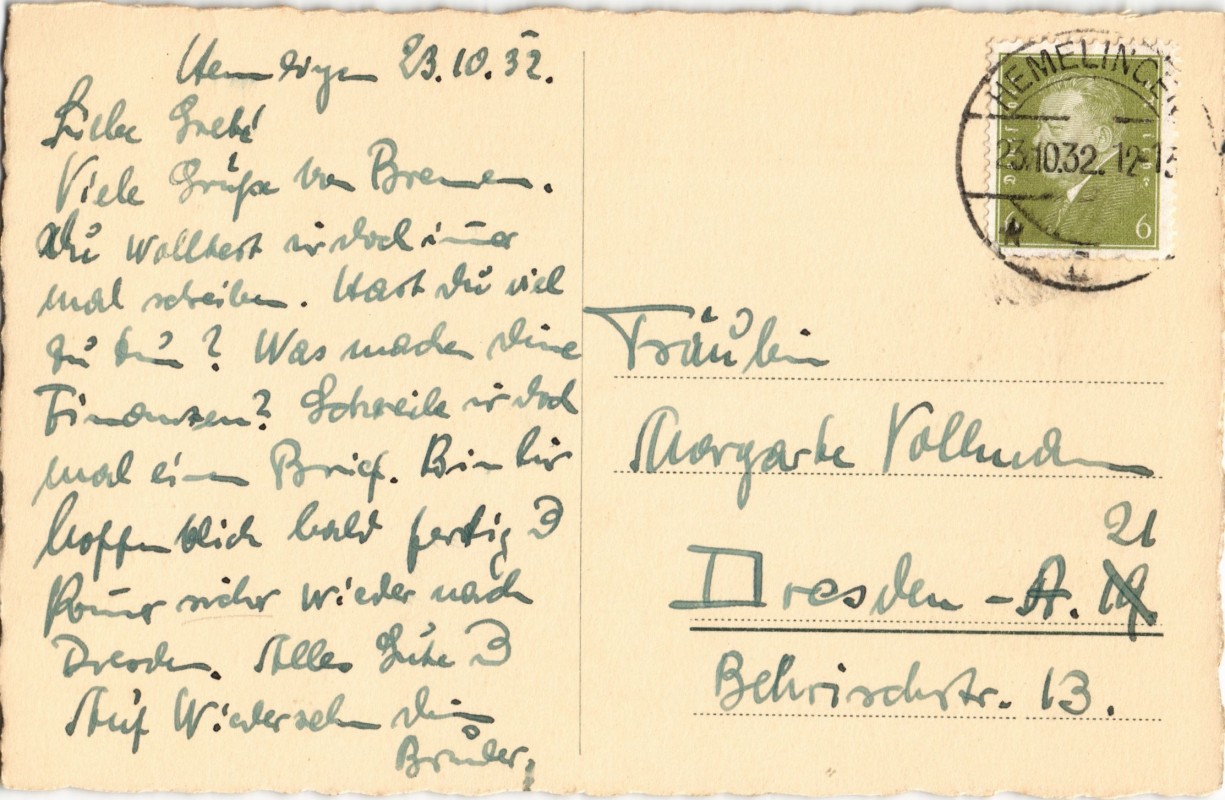 Hemelingen 23.10.32.
Liebe Grete!
Viele Grüße von Bremen.
Du wolltest mir doch immer
mal schreiben. Hast Du viel
zu tun? Was machen Deine
Finanzen? Schreibe mir doch
mal einen Brief. Bin hier
hoffentlich bald fertig &
komme sicher wieder nach
Dresden. Alles Gute &
Auf Wiedersehn Dein
Bruder.
HEMELINGEN
23.10.32. 12-13
6
Fräulein
Margarete Vollmann
21
Dresden - A. 19.
Behrischstr. 13.